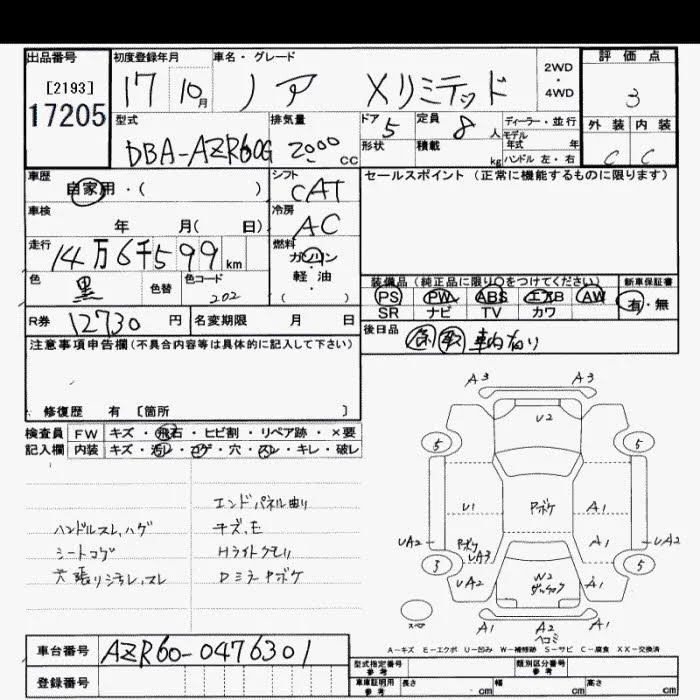 出品番号 初度登録年月 車名・グレード 2WD ・ 4WD 評価点
[2193] 17 10月 ノア Xリミテッド 3
17205
型式 排気量 ドア 5 定員 8人 ディーラー・並行 外装 内装
DBA-AZR60G 2000cc 形状 積載 kg モデル年式 年 C C
ハンドル 左・右
車歴 自家用・( ) シフト CAT セールスポイント(正常に機能するものに限ります)
車検 年 月( 日) 冷房 AC
走行 14万6千599km 燃料 ガソリン・軽油 ( )
色 黒 色替 色コード 202
装備品(純正品に限り○をつけてください) 新車保証書
PS PW ABS エアB AW 有・無
SR ナビ TV カワ
R券 12730円 名変期限 月 日 後日品 車内有り
注意事項申告欄(不具合内容等は具体的に記入して下さい)
修復歴 有 〔箇所 〕
検査員 FW キズ・飛石・ヒビ割・リペア跡・×要
記入欄 内装 キズ・汚レ・コゲ・穴・スレ・キレ・破レ
エンドパネル曲り
ハンドルスレ,ハゲ キズ,モ
シートコゲ Hライトクモリ
天張リシミ汚レ,スレ DミラーPボケ
A3 A3
U2
5 5
U1 Pボケ A1
UA2 Pボケ UA3 A1 UA2
3 UA2 W2 ダッチャク A1 5
A1 A2 A1
スペア ヘコミ
A-キズ E-エクボ U-凹み W-補修跡 S-サビ C-腐食 XX-交換済
車台番号 AZR60-0476301
登録番号
型式指定番号 参考 類別区分番号 参考
車庫証明用 参考 長さ cm 幅 cm 高さ cm